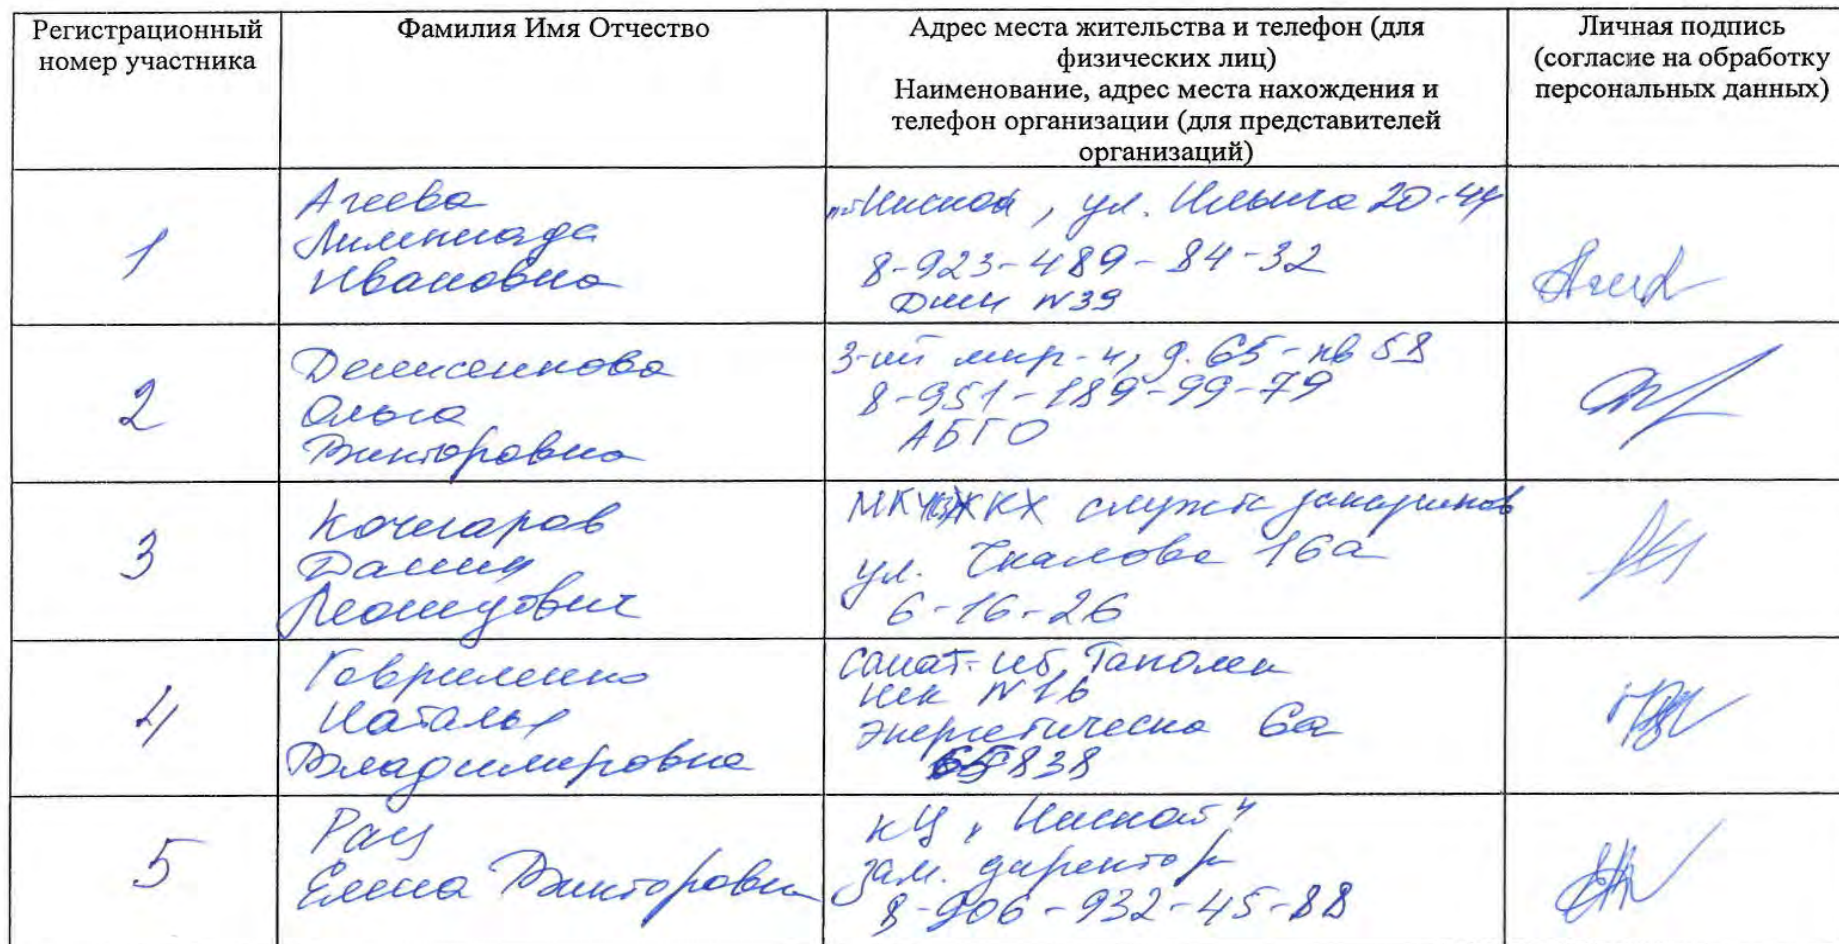 Регистрационный
номер участника
Фамилия Имя Отчество
Адрес места жительства и телефон (для
физических лиц)
Наименование, адрес места нахождения и
телефон организации (для представителей
организаций)
Личная подпись
(согласие на обработку
персональных данных)
1
Агеева
Ивановна
ул. Ильича 20-44
8-923-489-84-32
N39
2
Ольга
Викторовна
3-ий мкр-н, д. 65- кв 58
8-951-189-99-79
АБГО
3
Кочегаров
Данил
Леонидович
ЖКХ служба
ул. Чкалова 16а
6-16-26
4
Гавриленко
Наталья
Владимировна
N16
Энергетическа 6а
838
5
Рац
Елена Викторовна
КЦ
зам. директор
8-906-932-45-88